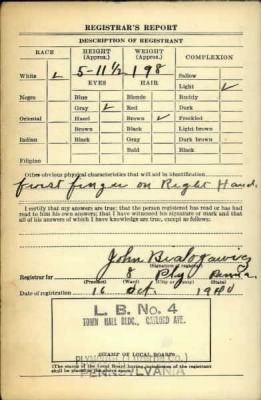 REGISTRAR'S REPORT
DESCRIPTION OF REGISTRANT
RACE HEIGHT (Approx.) WEIGHT (Approx.) COMPLEXION
White ✓ 5-11½ 198 Sallow
EYES HAIR Light ✓
Negro Blue Blonde Ruddy
Gray ✓ Red Dark
Oriental Hazel Brown ✓ Freckled
Brown Black Light brown
Indian Black Gray Dark brown
Bald Black
Filipino
Other obvious physical characteristics that will aid in identification
first finger on Right Hand.
I certify that my answers are true; that the person registered has read or has had
read to him his own answers; that I have witnessed his signature or mark and that
all of his answers of which I have knowledge are true, except as follows:
John
(Signature of registrar)
Registrar for 8 Ply Penna.
(Precinct) (Ward) (City or county) (State)
Date of registration 16 Oct. 1940
L. B. No. 4
TOWN HALL BLDG., GAYLORD AVE.
PLYMOUTH
PENNSYLVANIA
STAMP OF LOCAL BOARD
(The stamp of the Local Board having jurisdiction of the registrant
shall be placed in the above space.)